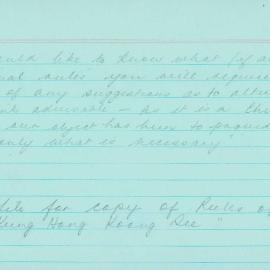 like to know what if a
rules you will require
of any suggestions as to alte
as it is a Ch
our object has been to
only what is necessary"
for copy of Rules o
Hong Koong See"